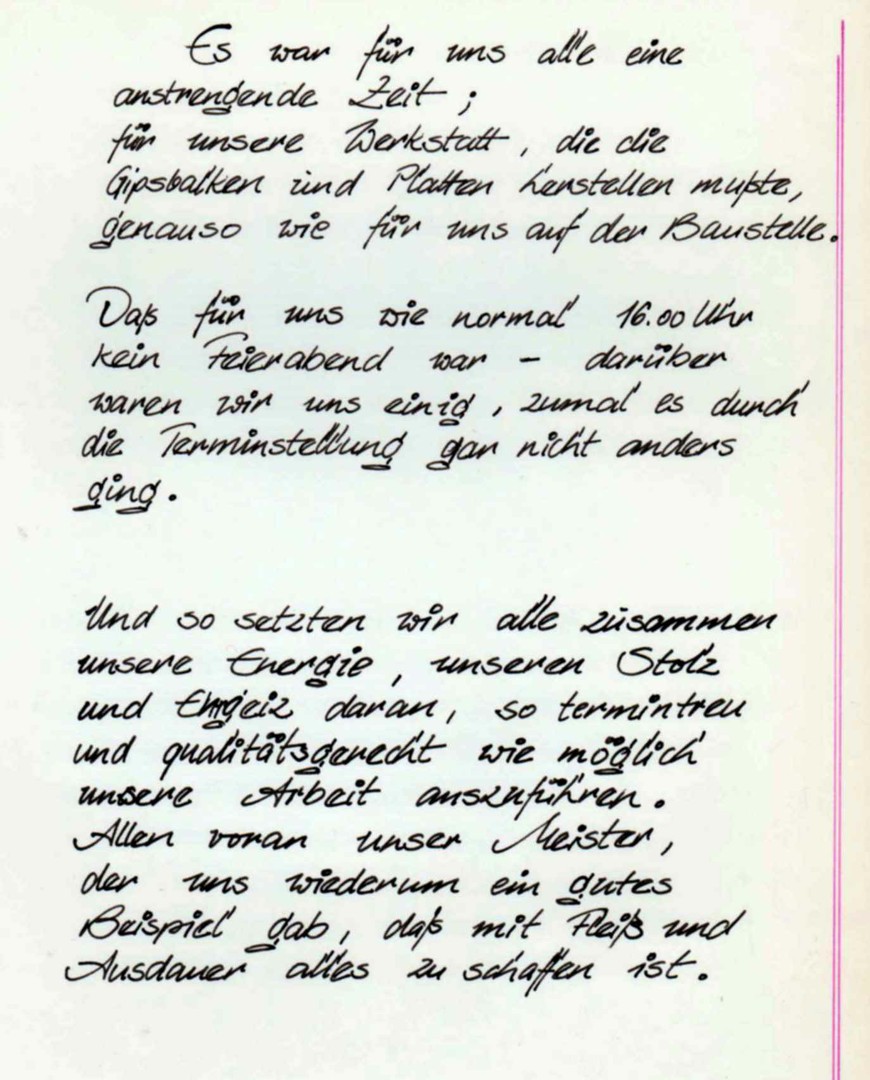 Es war für uns alle eine
anstrengende Zeit ;
für unsere Werkstatt , die die
Gipsbalken und Platten herstellen mußte,
genauso wie für uns auf der Baustelle.
Daß für uns wie normal 16.00 Uhr
kein Feierabend war - darüber
waren wir uns einig , zumal es durch
die Terminstellung gar nicht anders
ging .
Und so setzten wir alle zusammen
unsere Energie , unseren Stolz
und Ehrgeiz daran, so termintreu
und qualitätsgerecht wie möglich
unsere Arbeit auszuführen .
Allen voran unser Meister ,
der uns wiederum ein gutes
Beispiel gab , daß mit Fleiß und
Ausdauer alles zu schaffen ist .